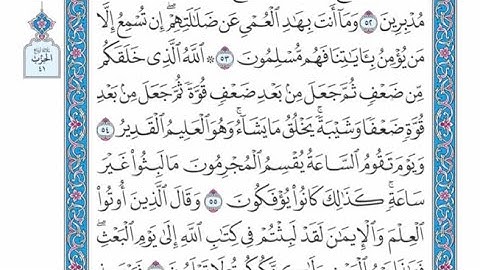 مُدْبِرِينَ ٥٢ وَمَآ أَنتَ بِهَٰدِ ٱلْعُمْىِ عَن ضَلَٰلَتِهِمْۖ إِن تُسْمِعُ إِلَّا
مَن يُؤْمِنُ بِـَٔايَٰتِنَا فَهُم مُّسْلِمُونَ ٥٣ ۞ ٱللَّهُ ٱلَّذِى خَلَقَكُم
مِّن ضَعْفٍ ثُمَّ جَعَلَ مِنۢ بَعْدِ ضَعْفٍ قُوَّةً ثُمَّ جَعَلَ مِنۢ بَعْدِ
قُوَّةٍ ضَعْفًا وَشَيْبَةًۚ يَخْلُقُ مَا يَشَآءُۖ وَهُوَ ٱلْعَلِيمُ ٱلْقَدِيرُ ٥٤
وَيَوْمَ تَقُومُ ٱلسَّاعَةُ يُقْسِمُ ٱلْمُجْرِمُونَ مَا لَبِثُوا۟ غَيْرَ
سَاعَةٍۚ كَذَٰلِكَ كَانُوا۟ يُؤْفَكُونَ ٥٥ وَقَالَ ٱلَّذِينَ أُوتُوا۟
ٱلْعِلْمَ وَٱلْإِيمَٰنَ لَقَدْ لَبِثْتُمْ فِى كِتَٰبِ ٱللَّهِ إِلَىٰ يَوْمِ ٱلْبَعْثِۖ
الحزب
٤١